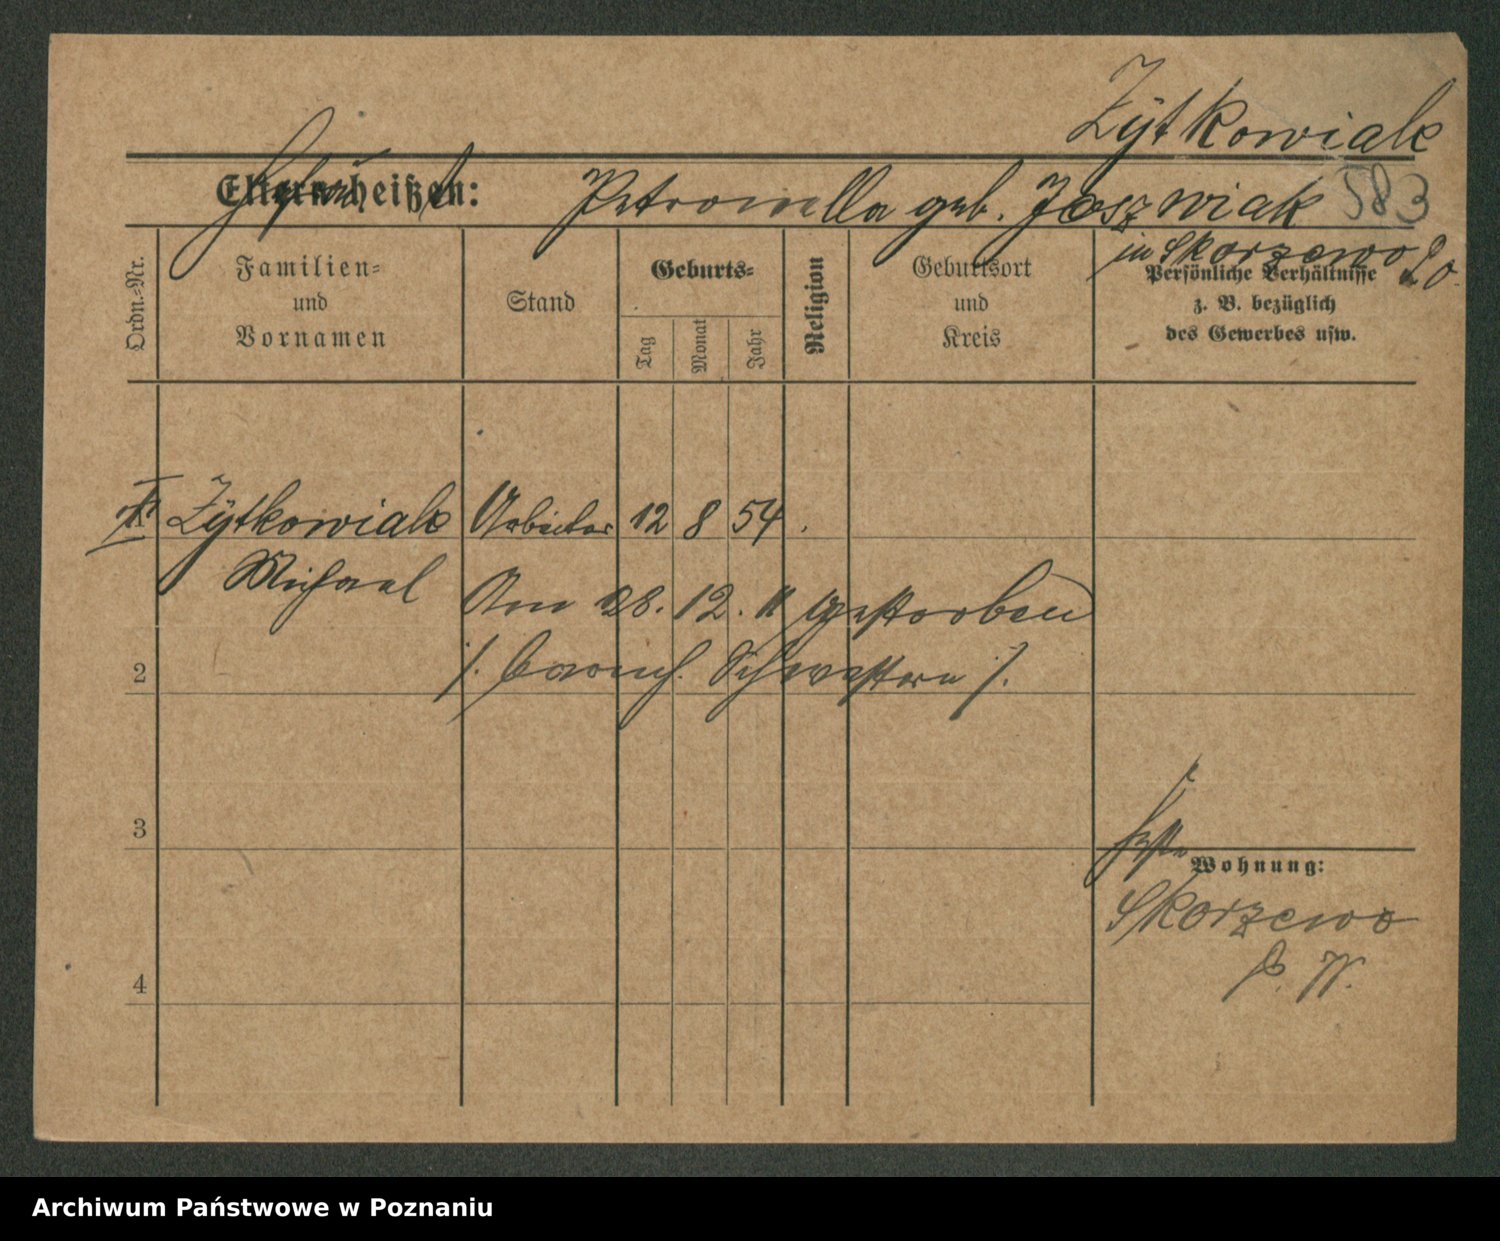 Zÿtkowiak
Eltern heißen: Petronella geb. Joszwiak 583
in Skorzewo
Ordn.-Nr.
Familien-
und
Vornamen
Stand
Geburts-
Tag
Monat
Jahr
Religion
Geburtsort
und
Kreis
Persönliche Verhältnisse
z. B. bezüglich
des Gewerbes usw.
Zÿtkowiak Arbeiter 12 8 54
Michael
Am 28. 12. 11 gestorben
/. barmh. Schwestern /.
2
3
Wohnung:
Skorzewo
P. W.
4
Archiwum Państwowe w Poznaniu